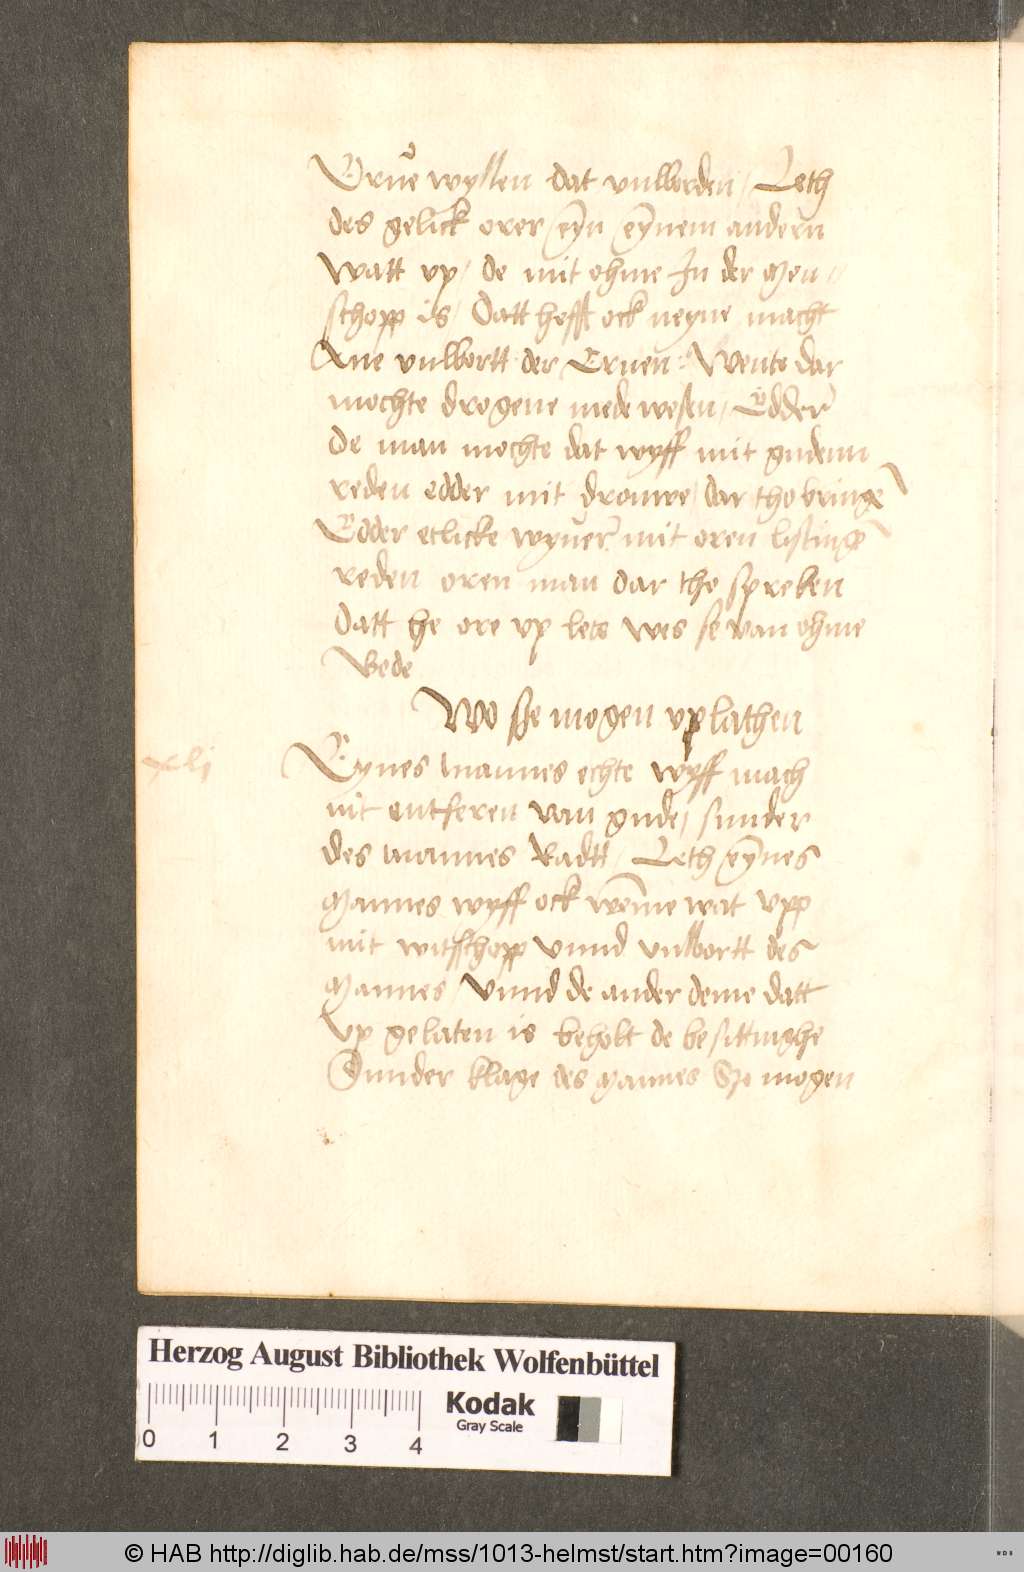 Erue wyllen dat vulborden / Leth
des gelick orer eyn eynem andern
Watt vp / de mit ohme In der Men
schopp is / Datt hefft ock neyne macht
Ane vulbortt der Eruen : Wente dar
mochte drogene mede wesen / Edder
De man mochte dat wyff mit gudenn
reden edder mit drouwe / dar tho bringē
Edder etlicke wyuer mit oren listingē
reden oren man dar tho spreken
Datt he ore vp lete wes se van ohme
Bede
Wo sße mogen vplathen
xlj
Eynes mannes echte wyff mach
nit entferen van gude / sunder
des mannes Radtt / Leth eynes
Mannes wyff ock weme wat vpp
mit witsschopp vnnd vulbortt des
Mannes / Vnnd de ander deme datt
vp gelaten is beholt de besittinghe
Sunder klage des Mannes So mogen
Herzog August Bibliothek Wolfenbüttel
0 1 2 3 4
Kodak
Gray Scale
© HAB http://diglib.hab.de/mss/1013-helmst/start.htm?image=00160